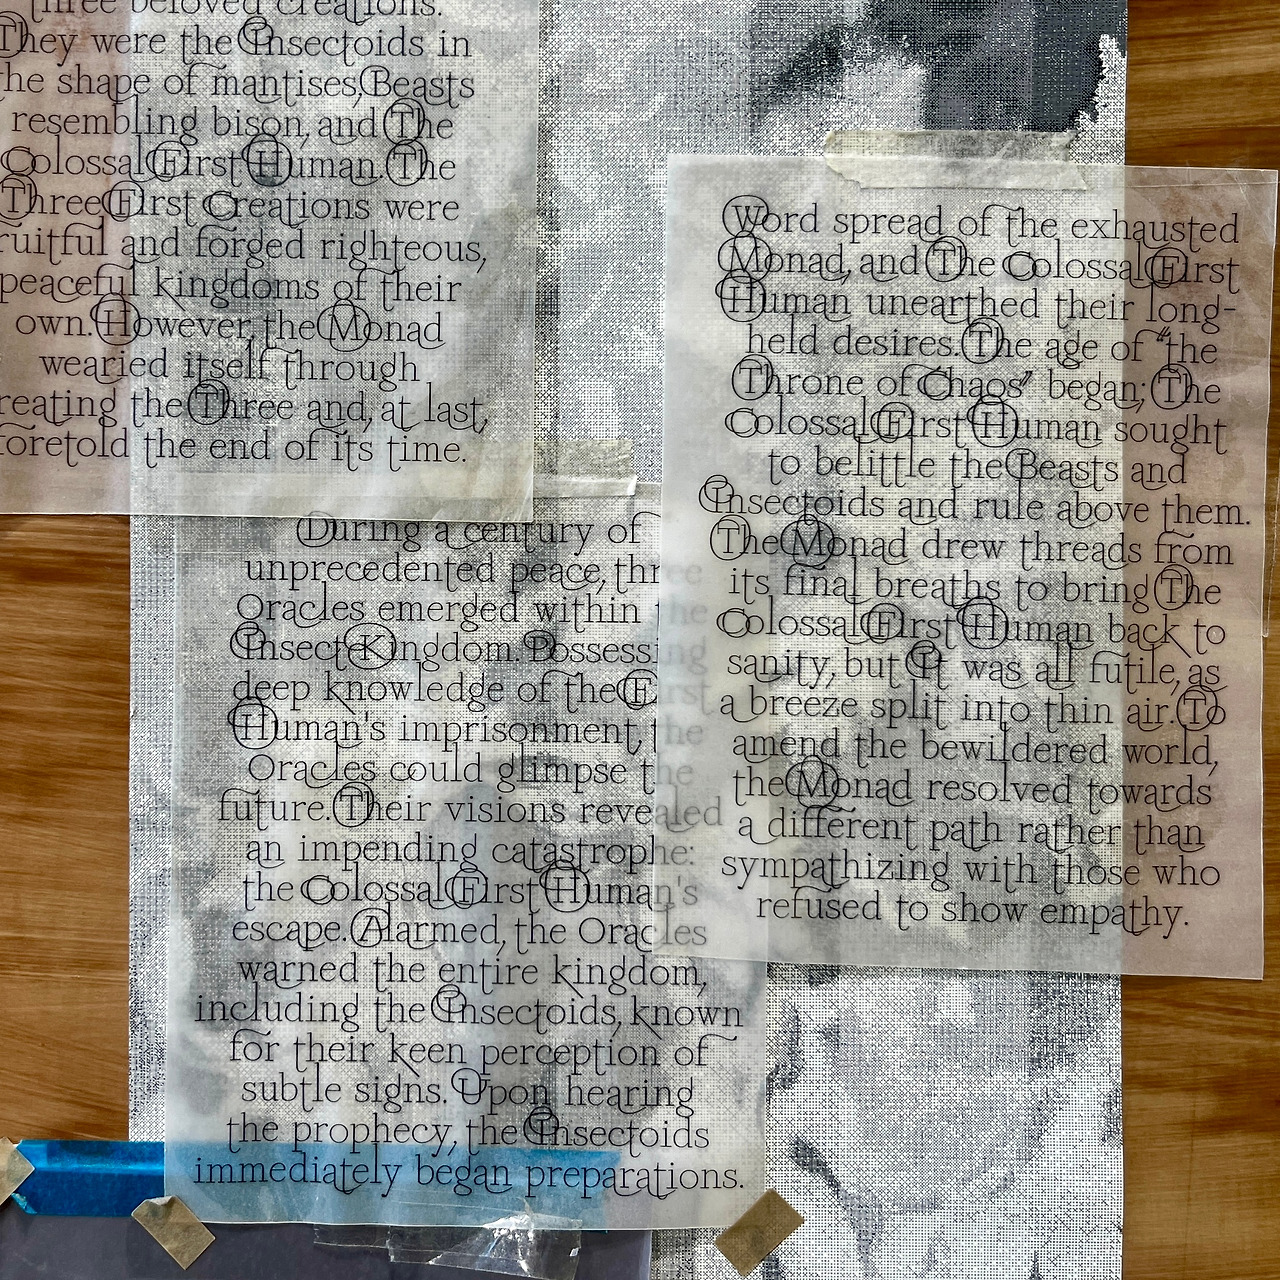 three beloved creations.
They were the Insectoids in
the shape of mantises, Beasts
resembling bison, and The
Colossal First Human. The
Three First Creations were
ruitful and forged righteous,
peaceful kingdoms of their
own. However, the Monad
wearied itself through
reating the Three and, at last,
foretold the end of its time.
During a century of
unprecedented peace, three
Oracles emerged within the
Insect Kingdom. Possessing
deep knowledge of the First
Human's imprisonment, the
Oracles could glimpse the
future. Their visions revealed
an impending catastrophe:
the Colossal First Human's
escape. Alarmed, the Oracles
warned the entire kingdom,
including the Insectoids, known
for their keen perception of
subtle signs. Upon hearing
the prophecy, the Insectoids
immediately began preparations.
Word spread of the exhausted
Monad, and The Colossal First
Human unearthed their long-
held desires. The age of "the
Throne of Chaos" began; The
Colossal First Human sought
to belittle the Beasts and
Insectoids and rule above them.
The Monad drew threads from
its final breaths to bring The
Colossal First Human back to
sanity, but It was all futile, as
a breeze split into thin air. To
amend the bewildered world,
the Monad resolved towards
a different path rather than
sympathizing with those who
refused to show empathy.